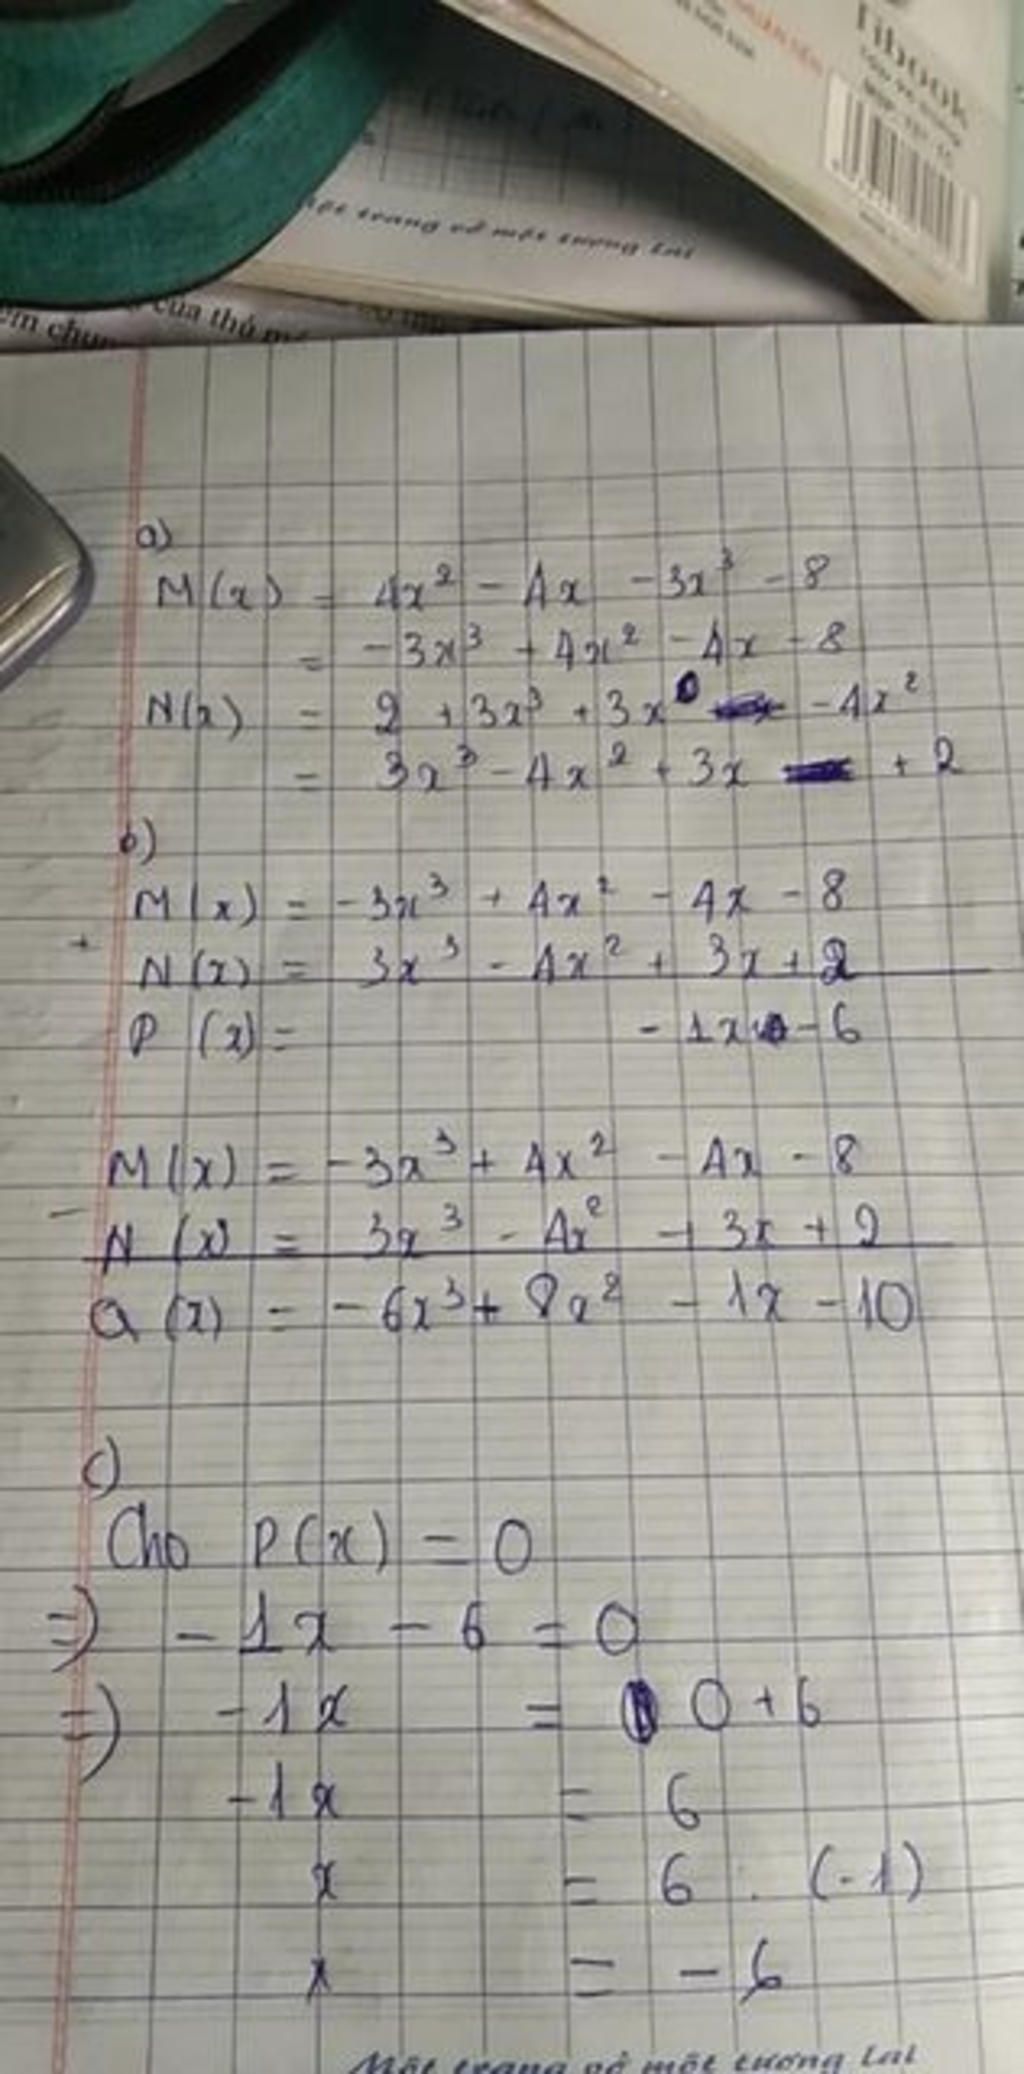 Fibook
một trang vở một tương lai
em chun
của thủ m
a)
M(x) = 4x² - 4x - 3x³ - 8
= -3x³ + 4x² - 4x - 8
N(x) = 2 + 3x³ + 3x - 4x²
= 3x³ - 4x² + 3x + 2
b)
M(x) = -3x³ + 4x² - 4x - 8
+
N(x) = 3x³ - 4x² + 3x + 2
P(x) = - 1x - 6
M(x) = -3x³ + 4x² - 4x - 8
-
N(x) = 3x³ - 4x² + 3x + 2
Q(x) = -6x³ + 8x² - 1x - 10
c)
Cho P(x) = 0
=> - 1x - 6 = 0
=> -1x = 0 + 6
-1x = 6
x = 6 : (-1)
x = - 6
Một trang vở một tương lai